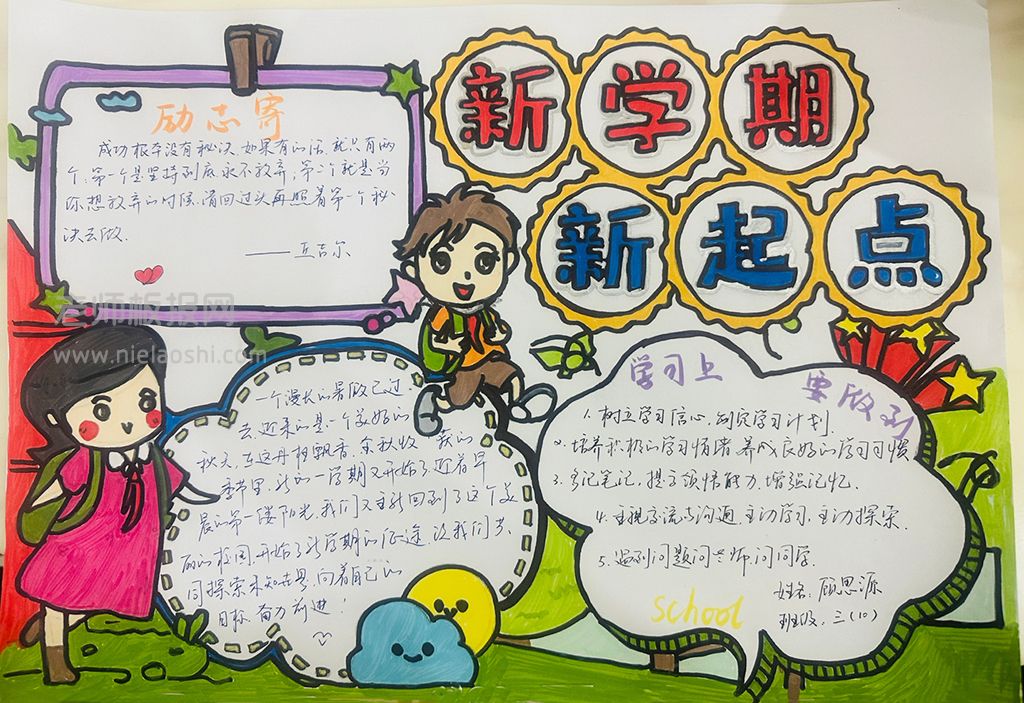 新学期
新起点
励志寄
成功根本没有秘决如果有的话,就只有两
个:第一个是坚持到底,永不放弃;第二个就是当
你想放弃的时候,请回过头再照着第一个秘
决去做.
——丘吉尔
老师板报网
www.nielaoshi.com
一个漫长的暑假已过
去,迎来的是一个美好的
秋天,在这丹桂飘香,金秋收获的
季节里,新的一学期又开始了,迎着早
晨的第一缕阳光,我们又重新回到了这个美
丽的校园,开始了新学期的征途,让我们共
同探索未知世界,向着自己的
目标奋力前进!
学习上
要做到
1.树立学习信心,制定学习计划.
2.培养积极的学习情绪,养成良好的学习习惯
3.多记笔记,提高领悟能力,增强记忆.
4.主视交流与沟通,主动学习,主动探索.
5.遇到问题问老师,问同学.
姓名:顾思源
班级:三(10)
school